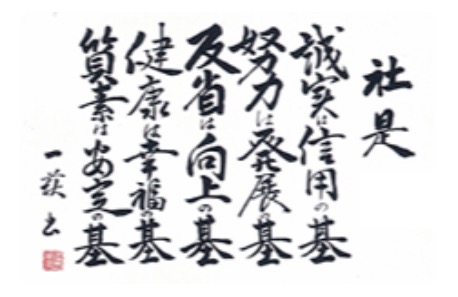 社是
誠実は信用の基
努力は発展の基
反省は向上の基
健康は幸福の基
質素は安定の基
一荻書